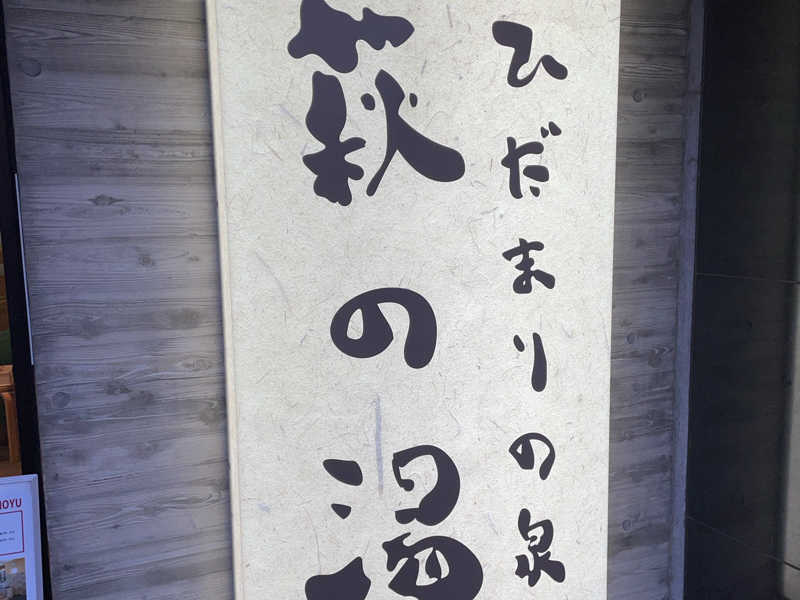 ひだまりの泉
萩の湯
NOYU